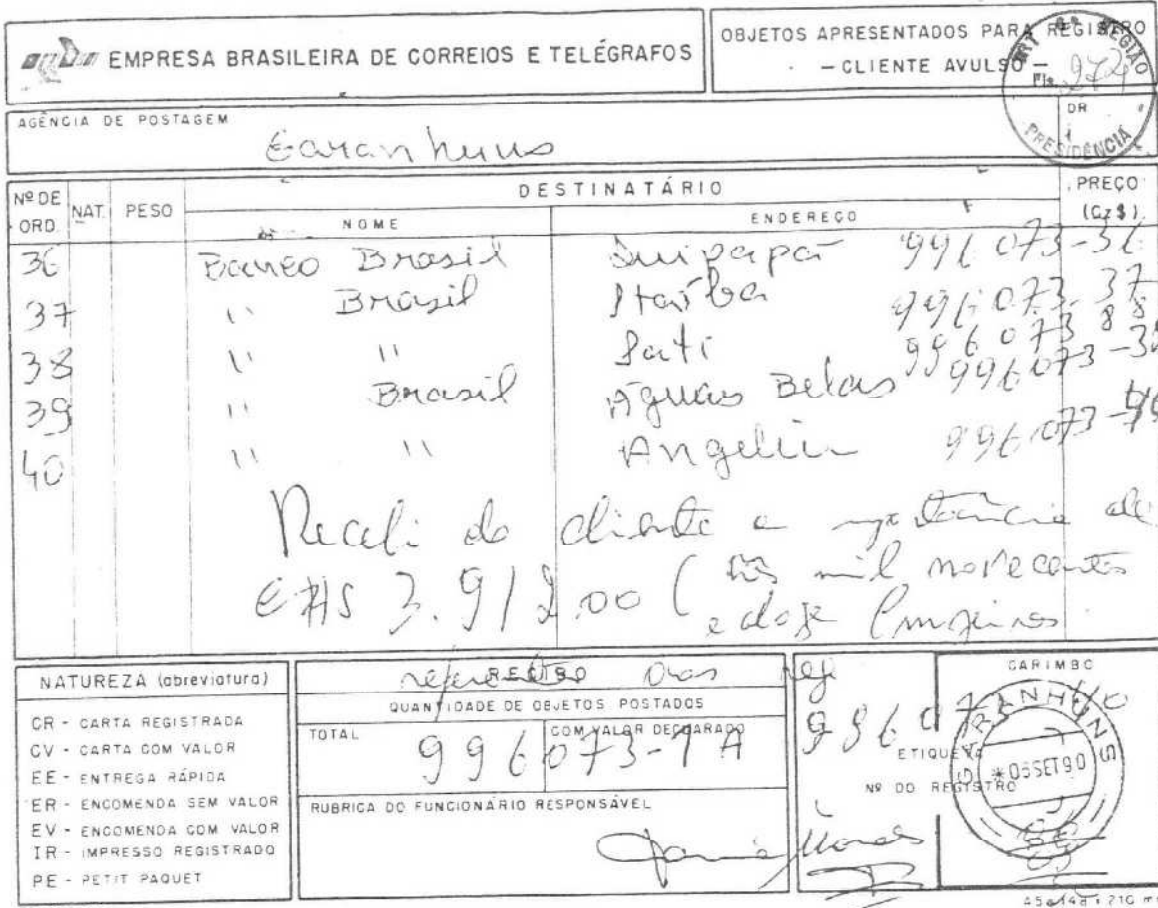 EMPRESA BRASILEIRA DE CORREIOS E TELÉGRAFOS
OBJETOS APRESENTADOS PARA REGISTRO
— CLIENTE AVULSO —
REGIÃO
Fls. 274
PRESIDÊNCIA
DR
AGÊNCIA DE POSTAGEM
Garanhuns
Nº DE ORD. NAT. PESO DESTINATÁRIO PREÇO (Cz$)
NOME ENDEREÇO
36 Banco Brasil 996 073-36
37 " Brasil Itaíba 996.073.37
38 " " Iati 996 073
39 " Brasil Águas Belas 996073
40 " " Angelim 996.073
Recebi do cliente a importância de
3.912.00 (três mil novecentos
e doze Cruzeiros
referentes RECIBO Reg
NATUREZA (abreviatura)
CR - CARTA REGISTRADA
CV - CARTA COM VALOR
EE - ENTREGA RÁPIDA
ER - ENCOMENDA SEM VALOR
EV - ENCOMENDA COM VALOR
IR - IMPRESSO REGISTRADO
PE - PETIT PAQUET
QUANTIDADE DE OBJETOS POSTADOS
TOTAL COM VALOR DECLARADO
996073-1 A
RUBRICA DO FUNCIONÁRIO RESPONSÁVEL
ETIQUETA
Nº DO REGISTRO
CARIMBO
GARANHUNS